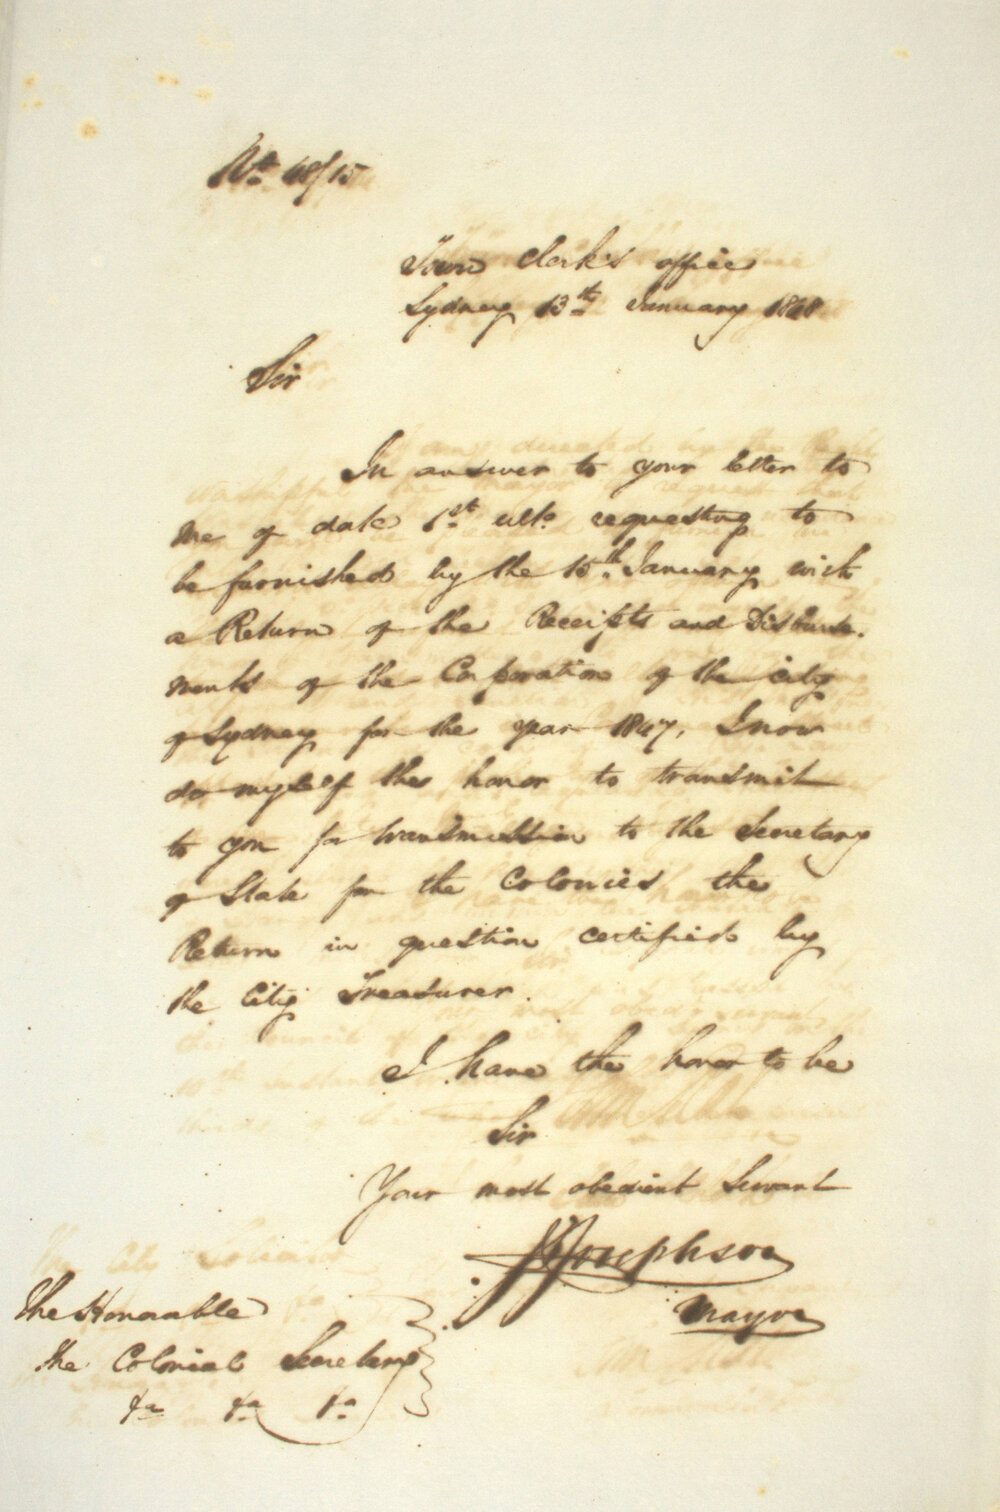 No. 48/15
Town Clerk's office
Sydney 13th January 1848
Sir
In answer to your letter to
me of date 1st ulto. requesting to
be furnished by the 15th January with
a Return of the Receipts and Disburse-
ments of the Corporation of the city
of Sydney for the year 1847, I now
do myself the honor to transmit
to you for transmission to the Secretary
of State for the Colonies the
Return in question certified by
the City Treasurer.
I have the honor to be
Sir
Your most obedient Servant
Josephson
Mayor
The Honorable
The Colonial Secretary
&a &a &a